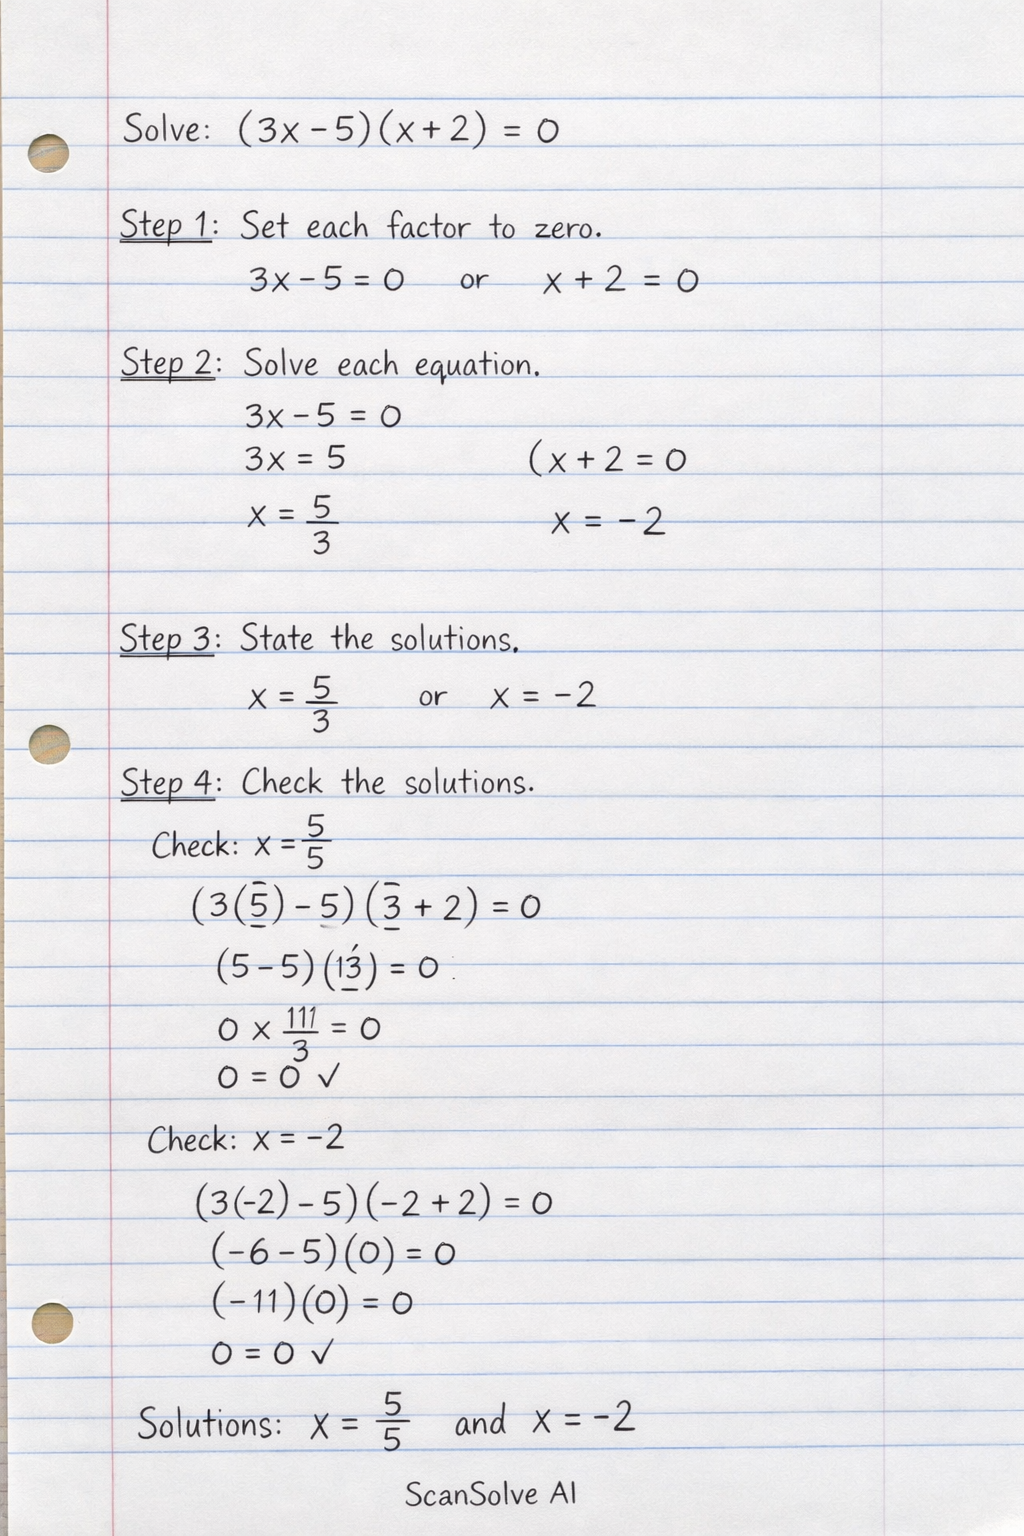 Solve: (3x - 5)(x + 2) = 0
Step 1: Set each factor to zero.
3x - 5 = 0 or x + 2 = 0
Step 2: Solve each equation.
3x - 5 = 0
3x = 5 (x + 2 = 0
x = 5/3 x = -2
Step 3: State the solutions.
x = 5/3 or x = -2
Step 4: Check the solutions.
Check: x = 5/5
(3(5) - 5)(3 + 2) = 0
(5 - 5)(13) = 0
0 x 111/3 = 0
0 = 0 ✓
Check: x = -2
(3(-2) - 5)(-2 + 2) = 0
(-6 - 5)(0) = 0
(-11)(0) = 0
0 = 0 ✓
Solutions: x = 5/5 and x = -2
ScanSolve AI